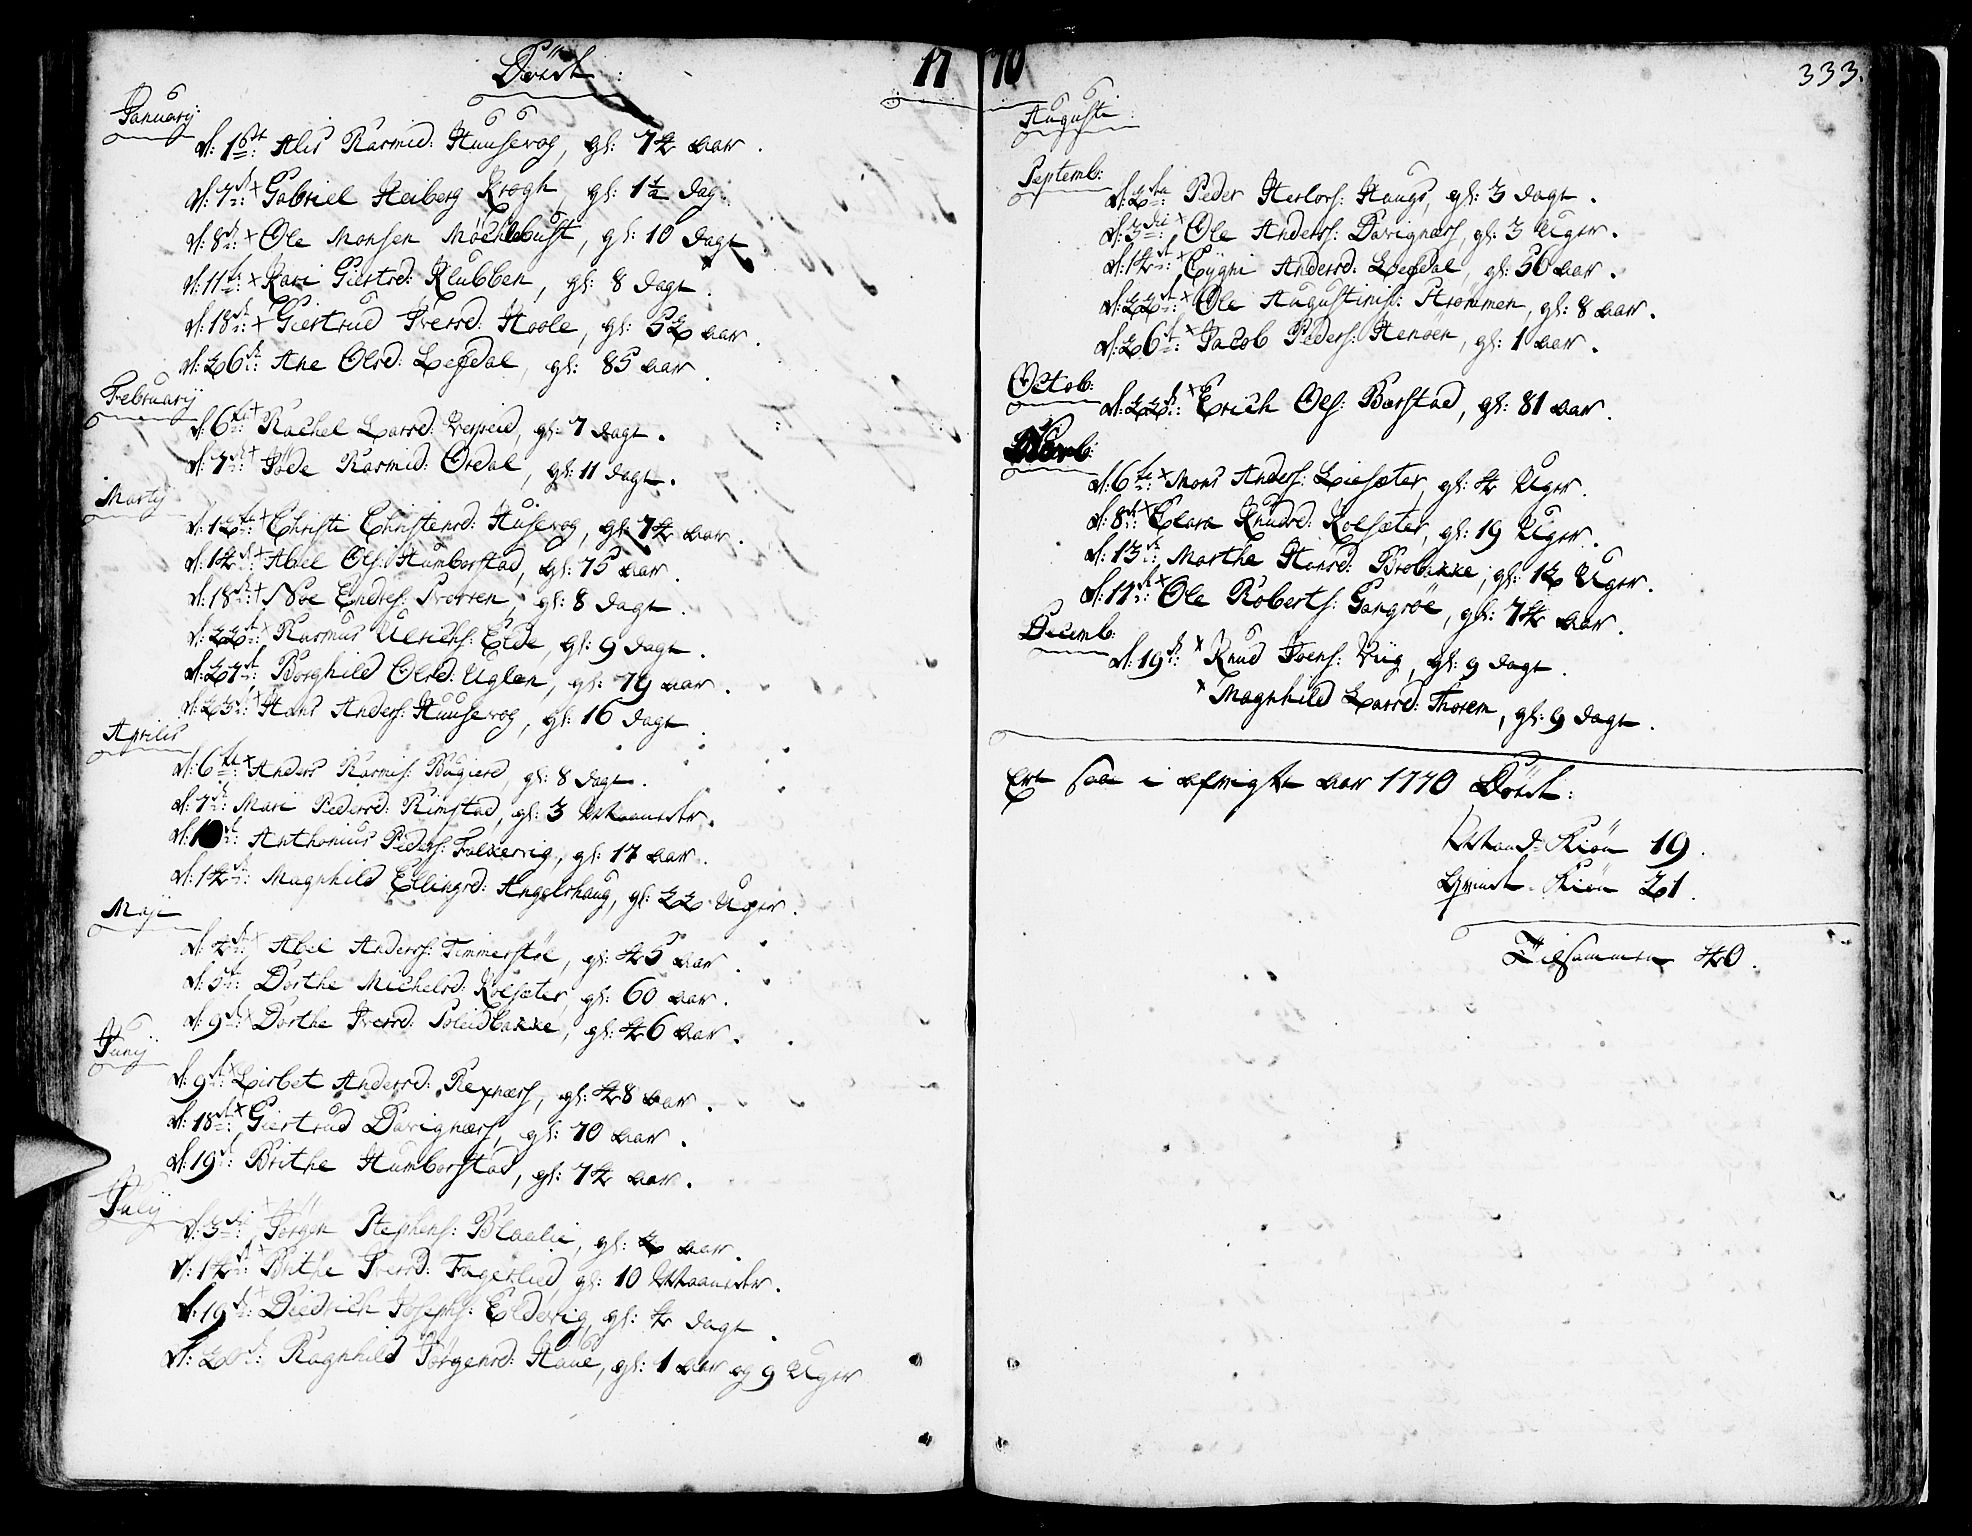 Døde : 1770
333.
January:
d: 1ste: Alis Rasmid: Huusevog, gl: 74 aar.
d: 7de: × Gabriel Heiberg Krogh, gl: 1½ dag:
d: 8de: × Ole Monsen Möchlebust, gl: 10 dage
d: 11te: × Kari Giertsd: Klubben, gl: 8 dage.
d: 18de: × Giertrud Iversd: Hoole, gl: 52 aar.
d: 26de: Ane Olsd: Lefdal, gl: 85 aar.
Februarij
d: 6te: + Rachel Larsd: gl: 7 dage.
d: 7de: + Jøde Rasmid: Ørdal, gl: 11 dage.
Martij
d: 12te: + Christi Christensd: Husevog, gl: 74 aar.
d: 14de: + Abel Ols: Humborstad, gl: 75 aar.
d: 18de: + Noe Endres: gl: 8 dage.
d: 22de: × Rasmus Ulrichs: Eide, gl: 9 dage.
d: 21de: Borghild Olsd: Uglen, gl: 79 aar.
d: 23de: × Hans Anders: Huusevog, gl: 16 dage.
Aprilis
d: 6te: × Anders Rasmis: Rugierd, gl: 8 dage.
d: 7de: Mari Pedersd: Rimstad, gl: 3 Maaneder.
d: 10de: Anthonius Peders: Falkevig, gl: 17 aar.
d: 14de: Magnhild Ellingsd: Angelshaug, gl: 22 Uger.
Maji
d: 4de: × Abel Anders: Timmerstøe, gl: 45 aar.
d: 5te: Dorthe Michelsd: Kolsæter, gl: 60 aar.
d: 9de: × Dorthe Iversd: Soleidbakke, gl: 46 aar.
Junij
d: 9de: × Lisbet Andersd: Refnæss, gl: 48 aar.
d: 18de: × Giertrud Davignæss, gl: 70 aar.
d: 19de: Brithe Humborstad, gl: 74 aar.
Julij
d: 3die: × Jørgen Stephens: Blaalie, gl: 2 aar.
d: 14de: × Brithe Iversd: Fagerlied, gl: 10 Maaneder.
d: 19de: + Diedrich Josephs: Eldevig, gl: 4 dage.
d: 20de: Ragnhild Jørgensd: Haue, gl: 1 aar og 9 Uger
Augusti :
Septemb:
d: 2den: Peder Herlovs: Haugs, gl: 3 dage.
d: 3die: × Ole Anders: Davignæss, gl: 3 Uger.
d: 14de: × Eygni Andersd: Lefdal, gl: 56 aar.
d: 22de: × Ole Augustinis: Strømmen, gl: 8 aar.
d: 26de: × Jacob Peders: Henøen, gl: 1 aar.
Octob:
d: 22de: × Erich Ols: Barstad, gl: 81 aar.
d: 6te: × Mons Anders: Liesæter, gl: 4 Uger.
d: 8de: × Clara Knudsd: Kolsæter, gl: 19 Uger.
d: 13de: Marthe Hansd: Brobakke, gl: 12 Uger.
d: 17de: × Ole Roberts: Gangsøe, gl: 74 aar.
Decemb:
d: 19de: × Knud Joens: Viig, gl: 9 dage.
× Magnhild Larsd: Thorem, gl: 9 dage.
Ere saa i afvigte aar 1770 Døde:
Mand-Kiøn 19.
Qvinde-Kiøn 21.
Tilsammen 40.